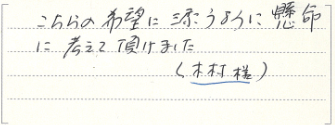 こちらの希望に添うように懸命
に考えて頂けました
(木村様)